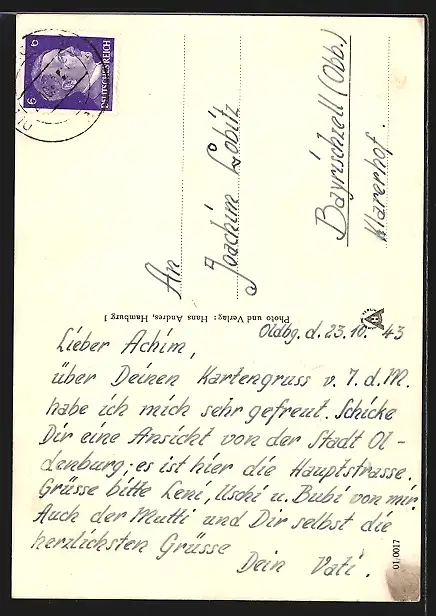 6 6
DEUTSCHES REICH
An
Joachim Löbütz
Bayrischzell (Obb.)
Klarerhof.
Photo und Verlag: Hans Andres, Hamburg 1
Oldbg. d. 23.10.43
Lieber Achim,
über Deinen Kartengruss v. 7. d. M.
habe ich mich sehr gefreut. Schicke
Dir eine Ansicht von der Stadt Ol-
denburg; es ist hier die Hauptstrasse.
Grüsse bitte Leni, Uschi u. Bubi von mir.
Auch der Mutti und Dir selbst die
herzlichsten Grüsse
Dein Vati.
01.0017